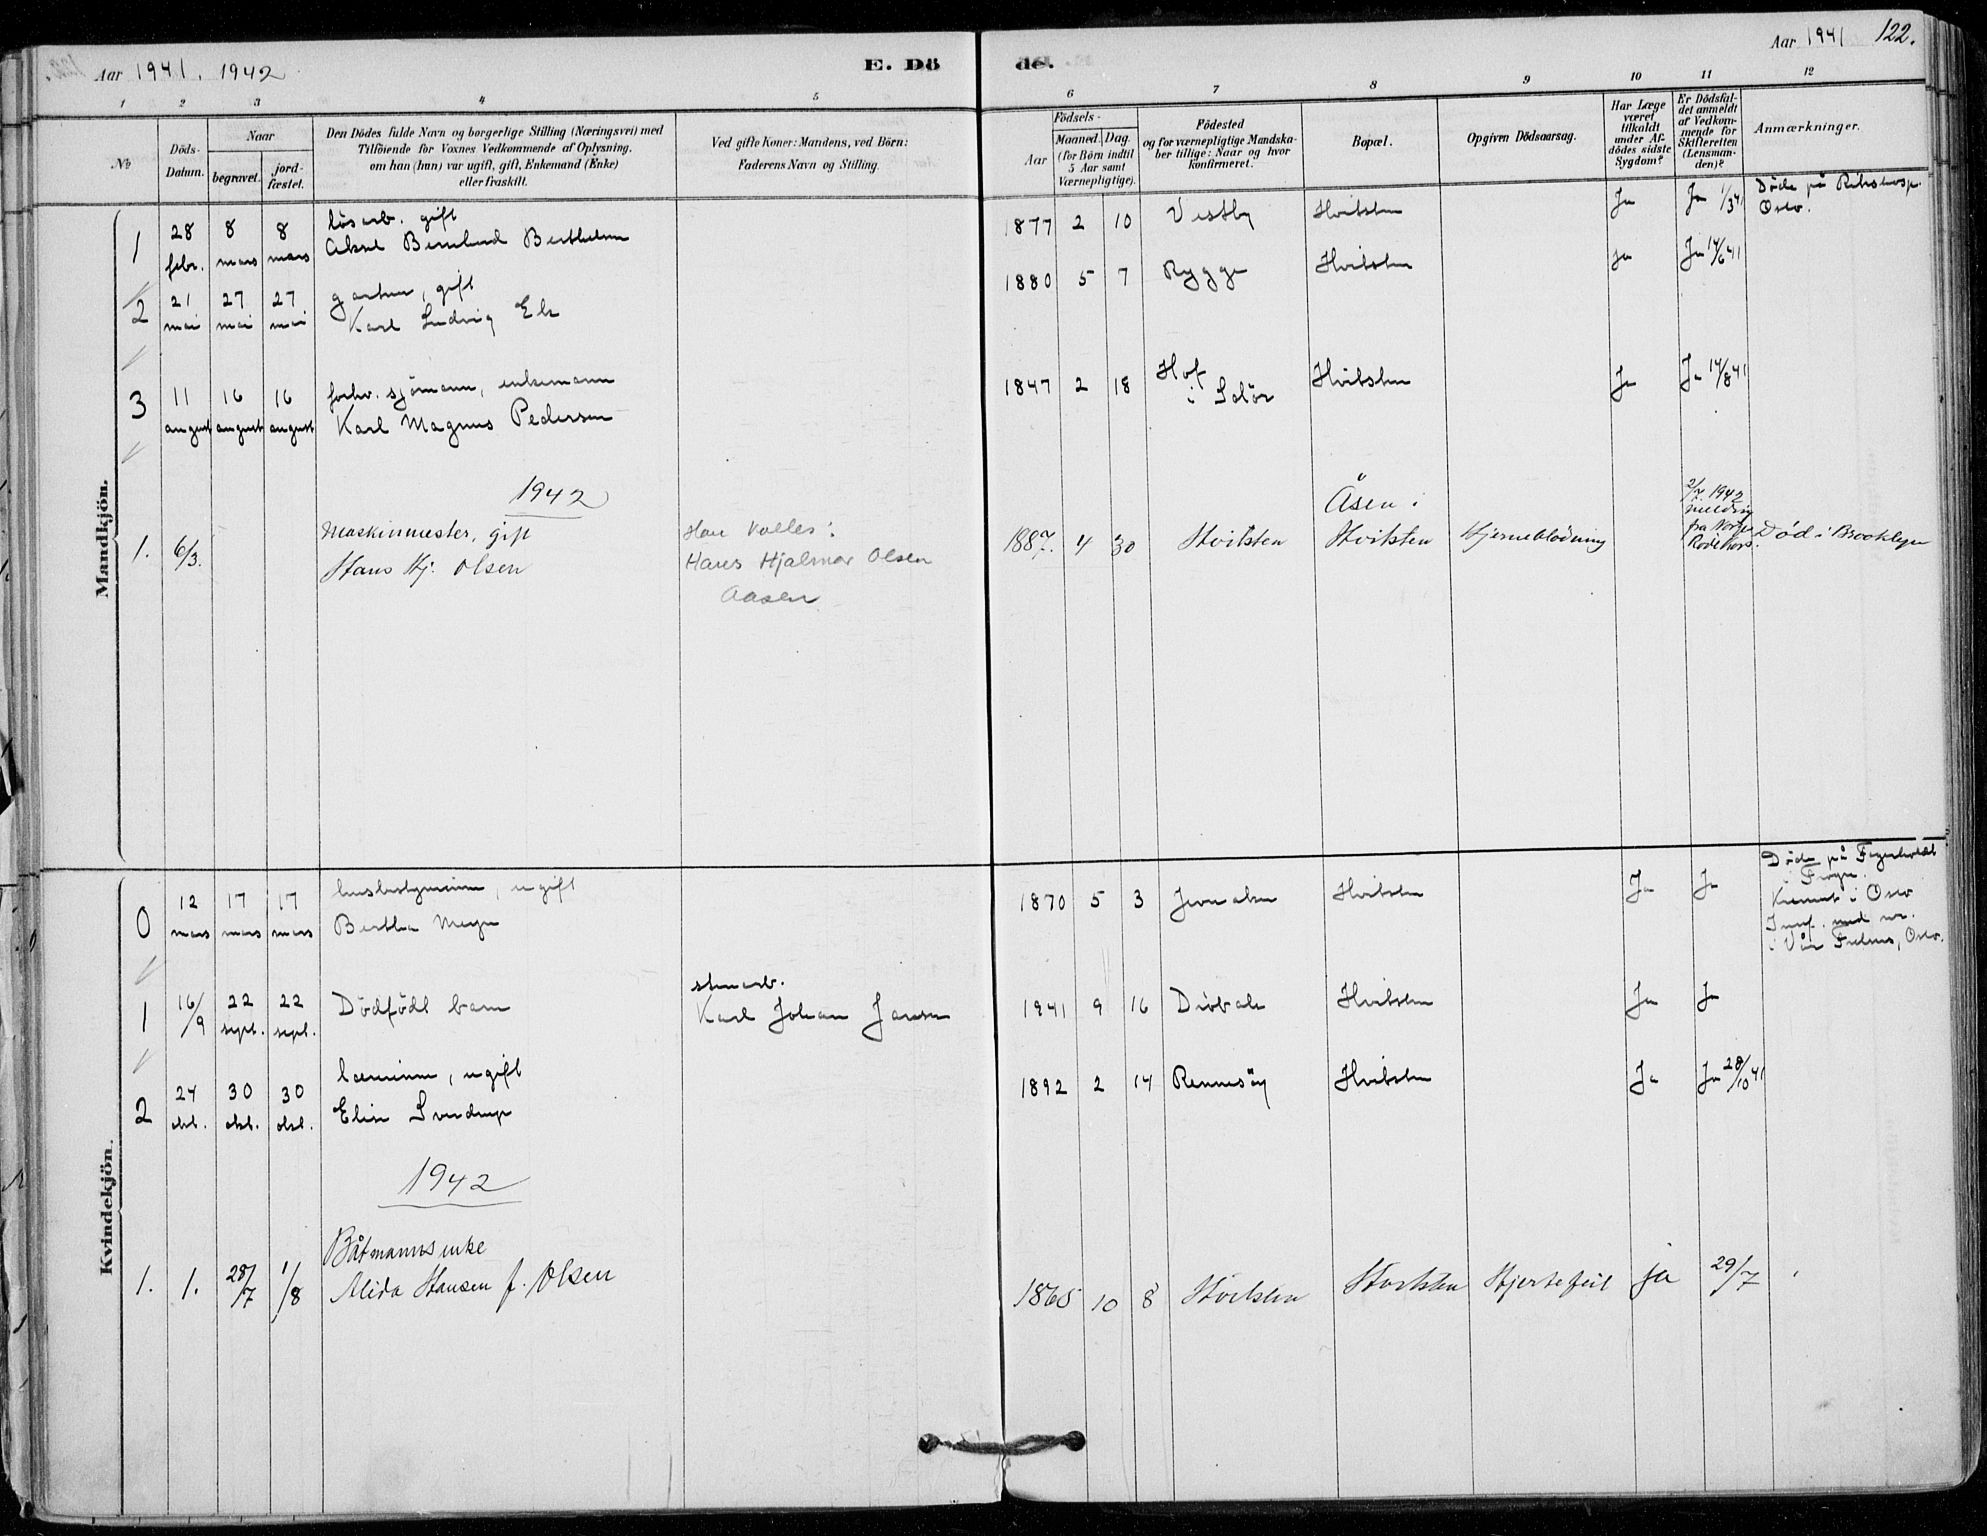 Aar 1941. 1942
E. Dö
de.
Aar 1941
122.
1 2 3 4 5
6 7 8 9 10 11 12
No
Döds-Datum.
Naar
begravet.
jord-fæstet.
Den Dödes fulde Navn og borgerlige Stilling (Næringsvei) med
Tilföiende for Voxnes Vedkommende af Oplysning,
om han (hun) var ugift, gift, Enkemand (Enke)
eller fraskilt.
Ved gifte Koner: Mandens, ved Börn:
Faderens Navn og Stilling.
Födsels-
Aar
Maaned. Dag.
(for Börn indtil
5 Aar samt
Værnepligtige).
Födested
og for værnepligtige Mandska-
ber tillige: Naar og hvor
konfirmeret.
Bopæl.
Opgiven Dödsaarsag.
Har Læge
været
tilkaldt
under Af-
dödes sidste
Sygdom?
Er Dödsfal-
det anmeldt
af Vedkom-
mende for
Skifteretten
(Lensman-
den)?
Anmærkninger.
Mandkjön.
1 28 febr. 8 mars 8 mars
lösarb. gift
Aksel Bernhard Berthelsen
1877 2 10 Vestby Hvitsten Ja Ja 1/3 41
Döde på Rikshosp.
Oslo.
2 21 mai 27 mai 27 mai
gartner, gift
Karl Ludvig Ek
1880 5 7 Rygge Hvitsten Ja Ja 14/6 41
3 11 august 16 august 16 august
forhv. sjömann, enkemann
Karl Magnus Pedersen
1847 2 18 Hof
i Solör
Hvitsten Ja Ja 14/8 41
1942
1. 6/3.
Maskinmester, gift
Hans Hj. Olsen
Han kalles:
Hans Hjalmar Olsen
Aasen
1887. 4 30 Hvitsten
Åsen i
Hvitsten
Hjerneblödning
2/7. 1942
melding
fra Norges
Röde Kors.
Död i Brooklyn
Kvindekjön.
0 12 mars 17 mars 17 mars
husbestyrerinne, ugift
Bertha Meyer
1870 5 3 Hvitsten Ja Ja
Döde på
i Frogn.
Kremert i Oslo
i Vår Frelsers, Oslo.
1 16/9 22 sept. 22 sept.
Dödfödt barn
stenarb.
Karl Johan Jansen
1941 9 16 Dröbak Hvitsten Ja Ja
2 24 okt. 30 okt. 30 okt.
lærerinne, ugift
Elise Sverdrup
1892 2 14 Rennesöy Hvitsten Ja Ja 28/10 41
1942
1. 1. 28/7 1/8
Båtmannsenke
Alida Hansen f. Olsen
1865 10 8 Hvitsten Hvitsten Hjertefeil ja 29/7